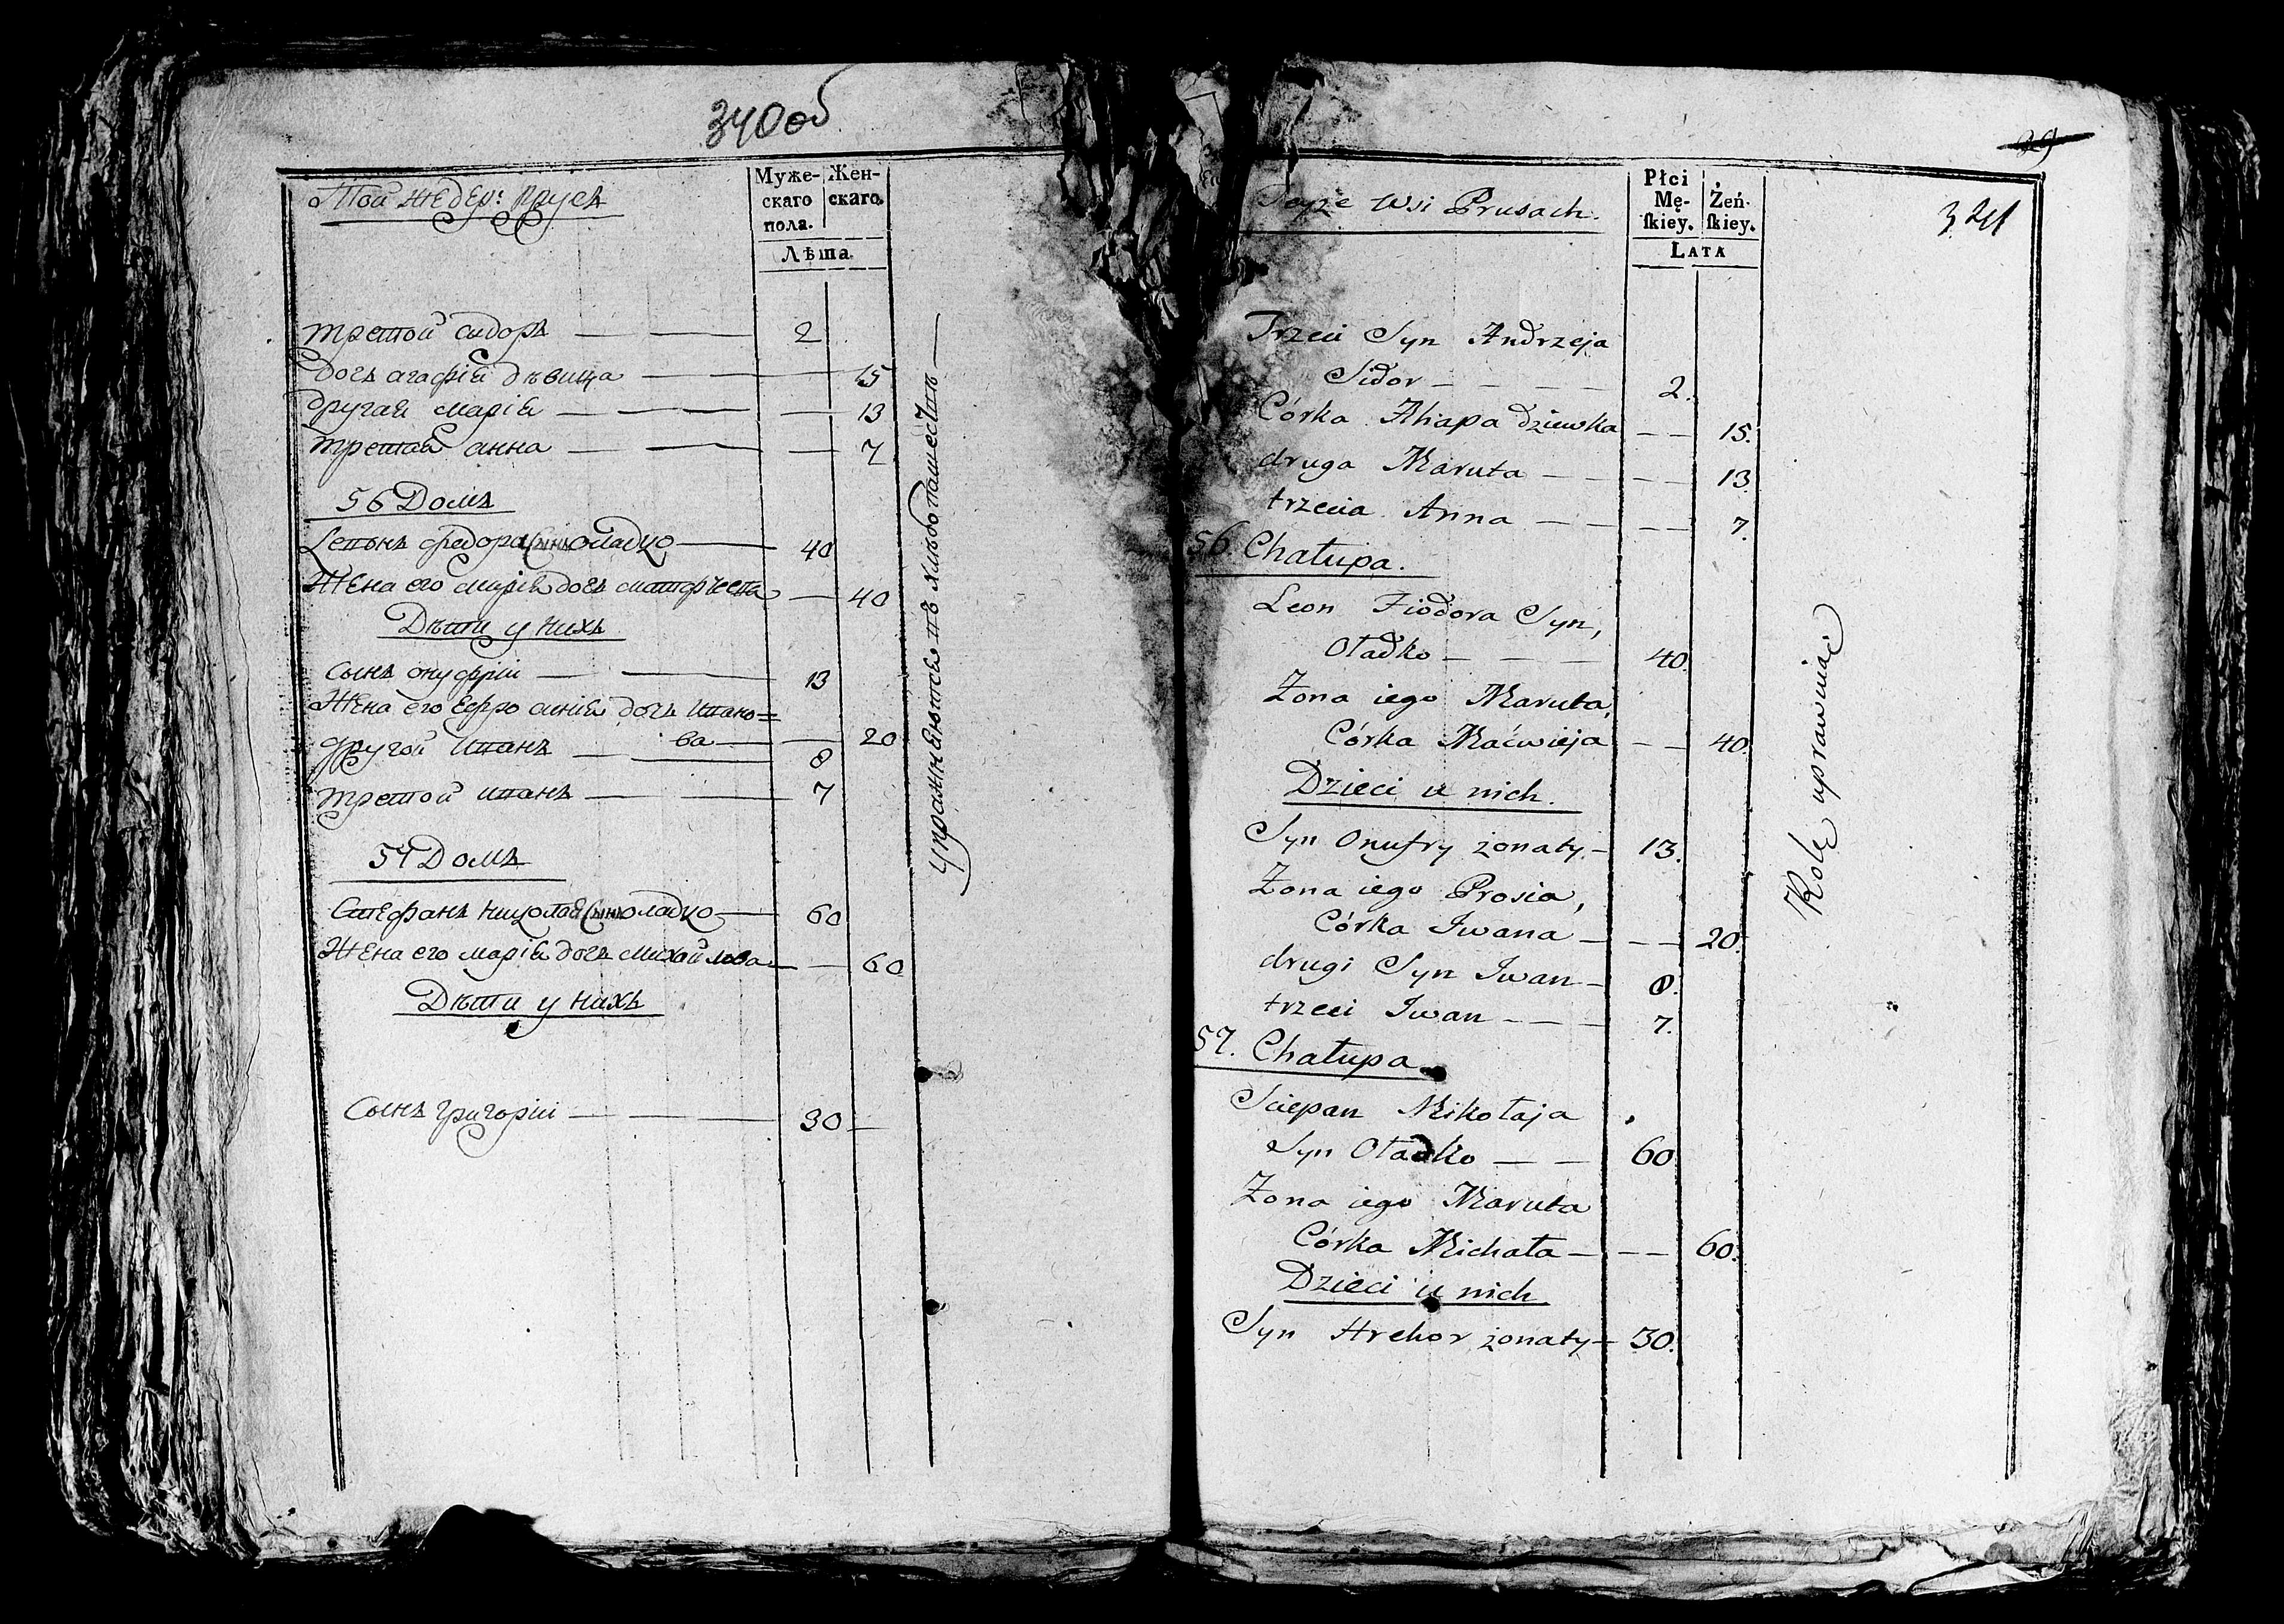 340 об
Той же дер: Прусъ
Муже-
скаго
пола.
Жен-
скаго.
Лѣта.
третой сидоръ — — 2
Дочь агафіѣ дѣвица — — — 15
другаѣ маріѣ — — — — 13
третаѣ анна — — — 7
56 Домъ
Леонъ федора Сынъ оладко — 40
Жена его маріѣ дочь матфѣева — 40
Дѣти у нихъ
сынъ онуфріи — — 13
Жена его Ефросиніѣ дочь ивано=
ва — — 20
другой иванъ — — 8
третой иванъ — — 7
57 Домъ
Стефанъ николаѣ Сынъ оладко — 60
Жена его маріѣ дочь михайлова — — 60
Дѣти у нихъ
Сынъ григоріи — — 30 —
упражнѣютсѣ въ хлѣбопашествѣ —
39
341
Teyże Wsi Prusach.
Płci
Mę-
skiey.
Żeń-
skiey.
Lata
Trzeci Syn Andrzeja
Sidor — — — — 2.
Córka Ahapa dziewka — — 15.
druga Maruta — — — — 13.
trzecia Anna — — — — 7.
56. Chałupa.
Leon Fiodora Syn,
Oładko — — — 40.
Żona iego Maruta,
Córka Maćwieja — — 40.
Dzieci u nich.
Syn Onufry żonaty — 13.
Żona iego Prosia,
Córka Iwana — — — 20.
drugi Syn Iwan — 8.
trzeci Iwan — — — 7.
57. Chałupa
Sciepan Mikołaja
Syn Oładko — — 60
Żona iego Maruta
Córka Michała — — — 60.
Dzieci u nich
Syn Hrehor żonaty — 30.
Rolę uprawniać